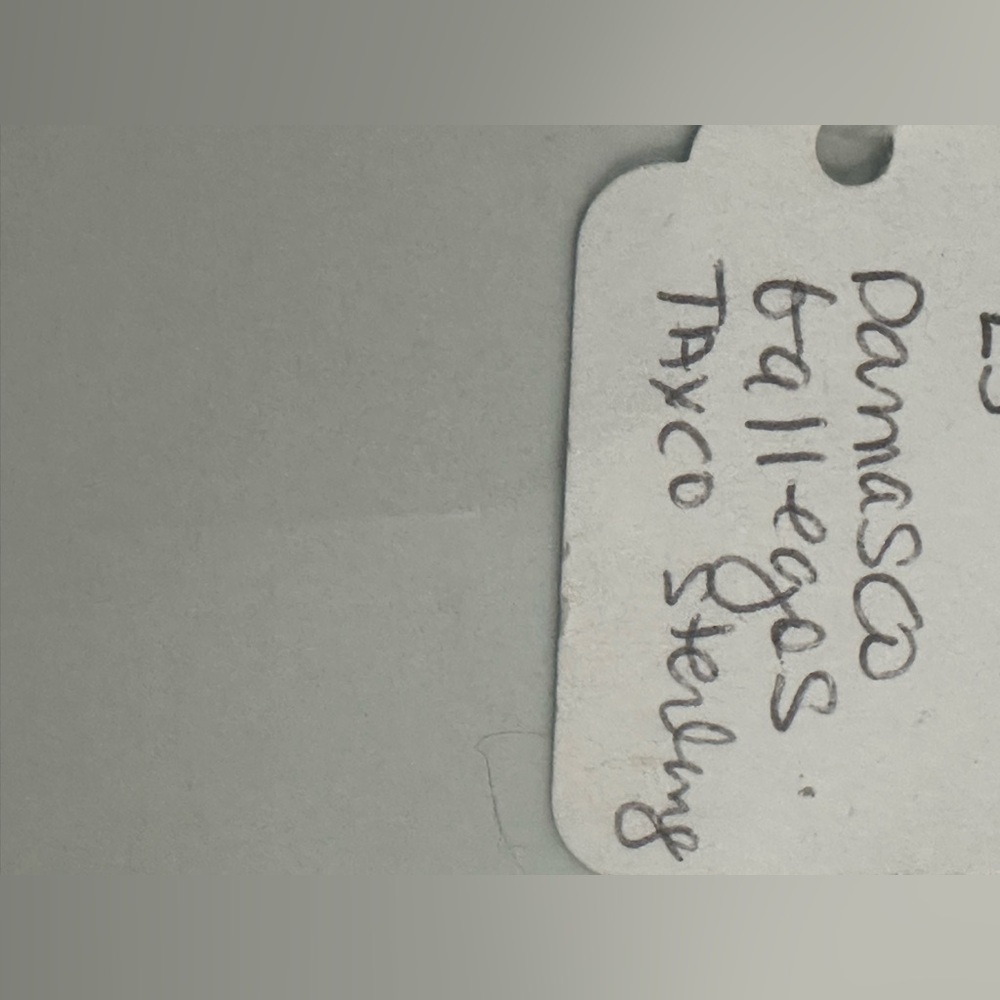 Damasco
Gallegos
TAXCO Sterling